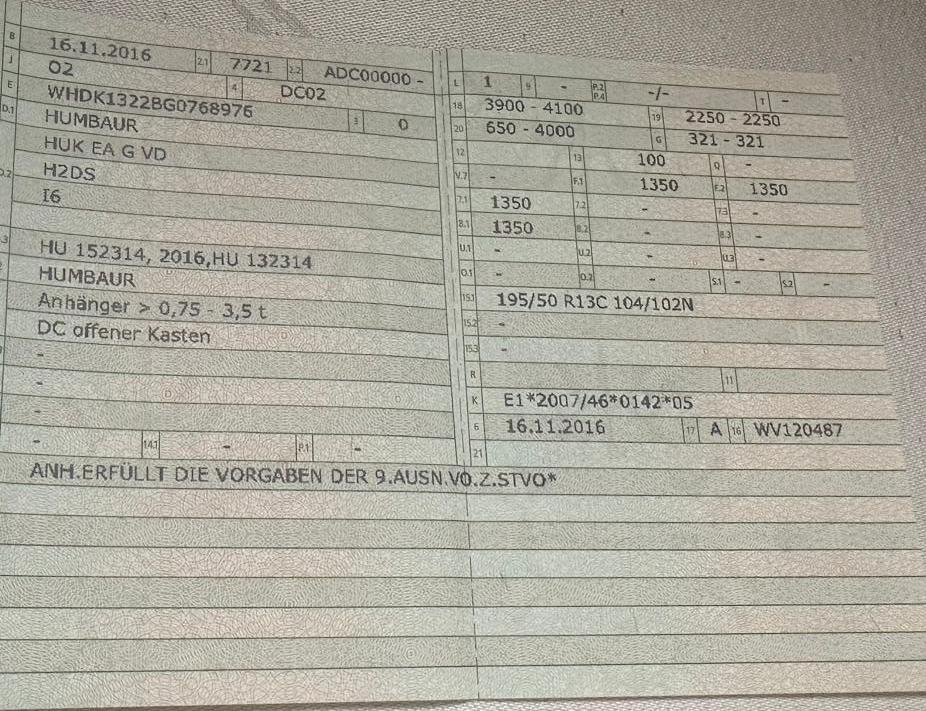 B 16.11.2016 2.1 7721 2.2 ADC00000 -
J O2 4 DC02
E WHDK1322BG0768976 3 0
D.1 HUMBAUR
HUK EA G VD
D.2 H2DS
I6
3 HU 152314, 2016,HU 132314
HUMBAUR
Anhänger > 0,75 - 3,5 t
DC offener Kasten
-
-
-
- 14.1 - P.1 -
L 1 9 - P.2 P.4 -/- T -
18 3900 - 4100 19 2250 - 2250
20 650 - 4000 G 321 - 321
12 13 100 Q -
V.7 - F.1 1350 F.2 1350
7.1 1350 7.2 - 7.3 -
8.1 1350 8.2 - 8.3 -
U.1 - U.2 - U.3 -
O.1 - O.2 - S.1 - S.2 -
15.1 195/50 R13C 104/102N
15.2 -
15.3 -
R 11
K E1*2007/46*0142*05
6 16.11.2016 17 A 16 WV120487
21
ANH.ERFÜLLT DIE VORGABEN DER 9.AUSN.VO.Z.STVO*